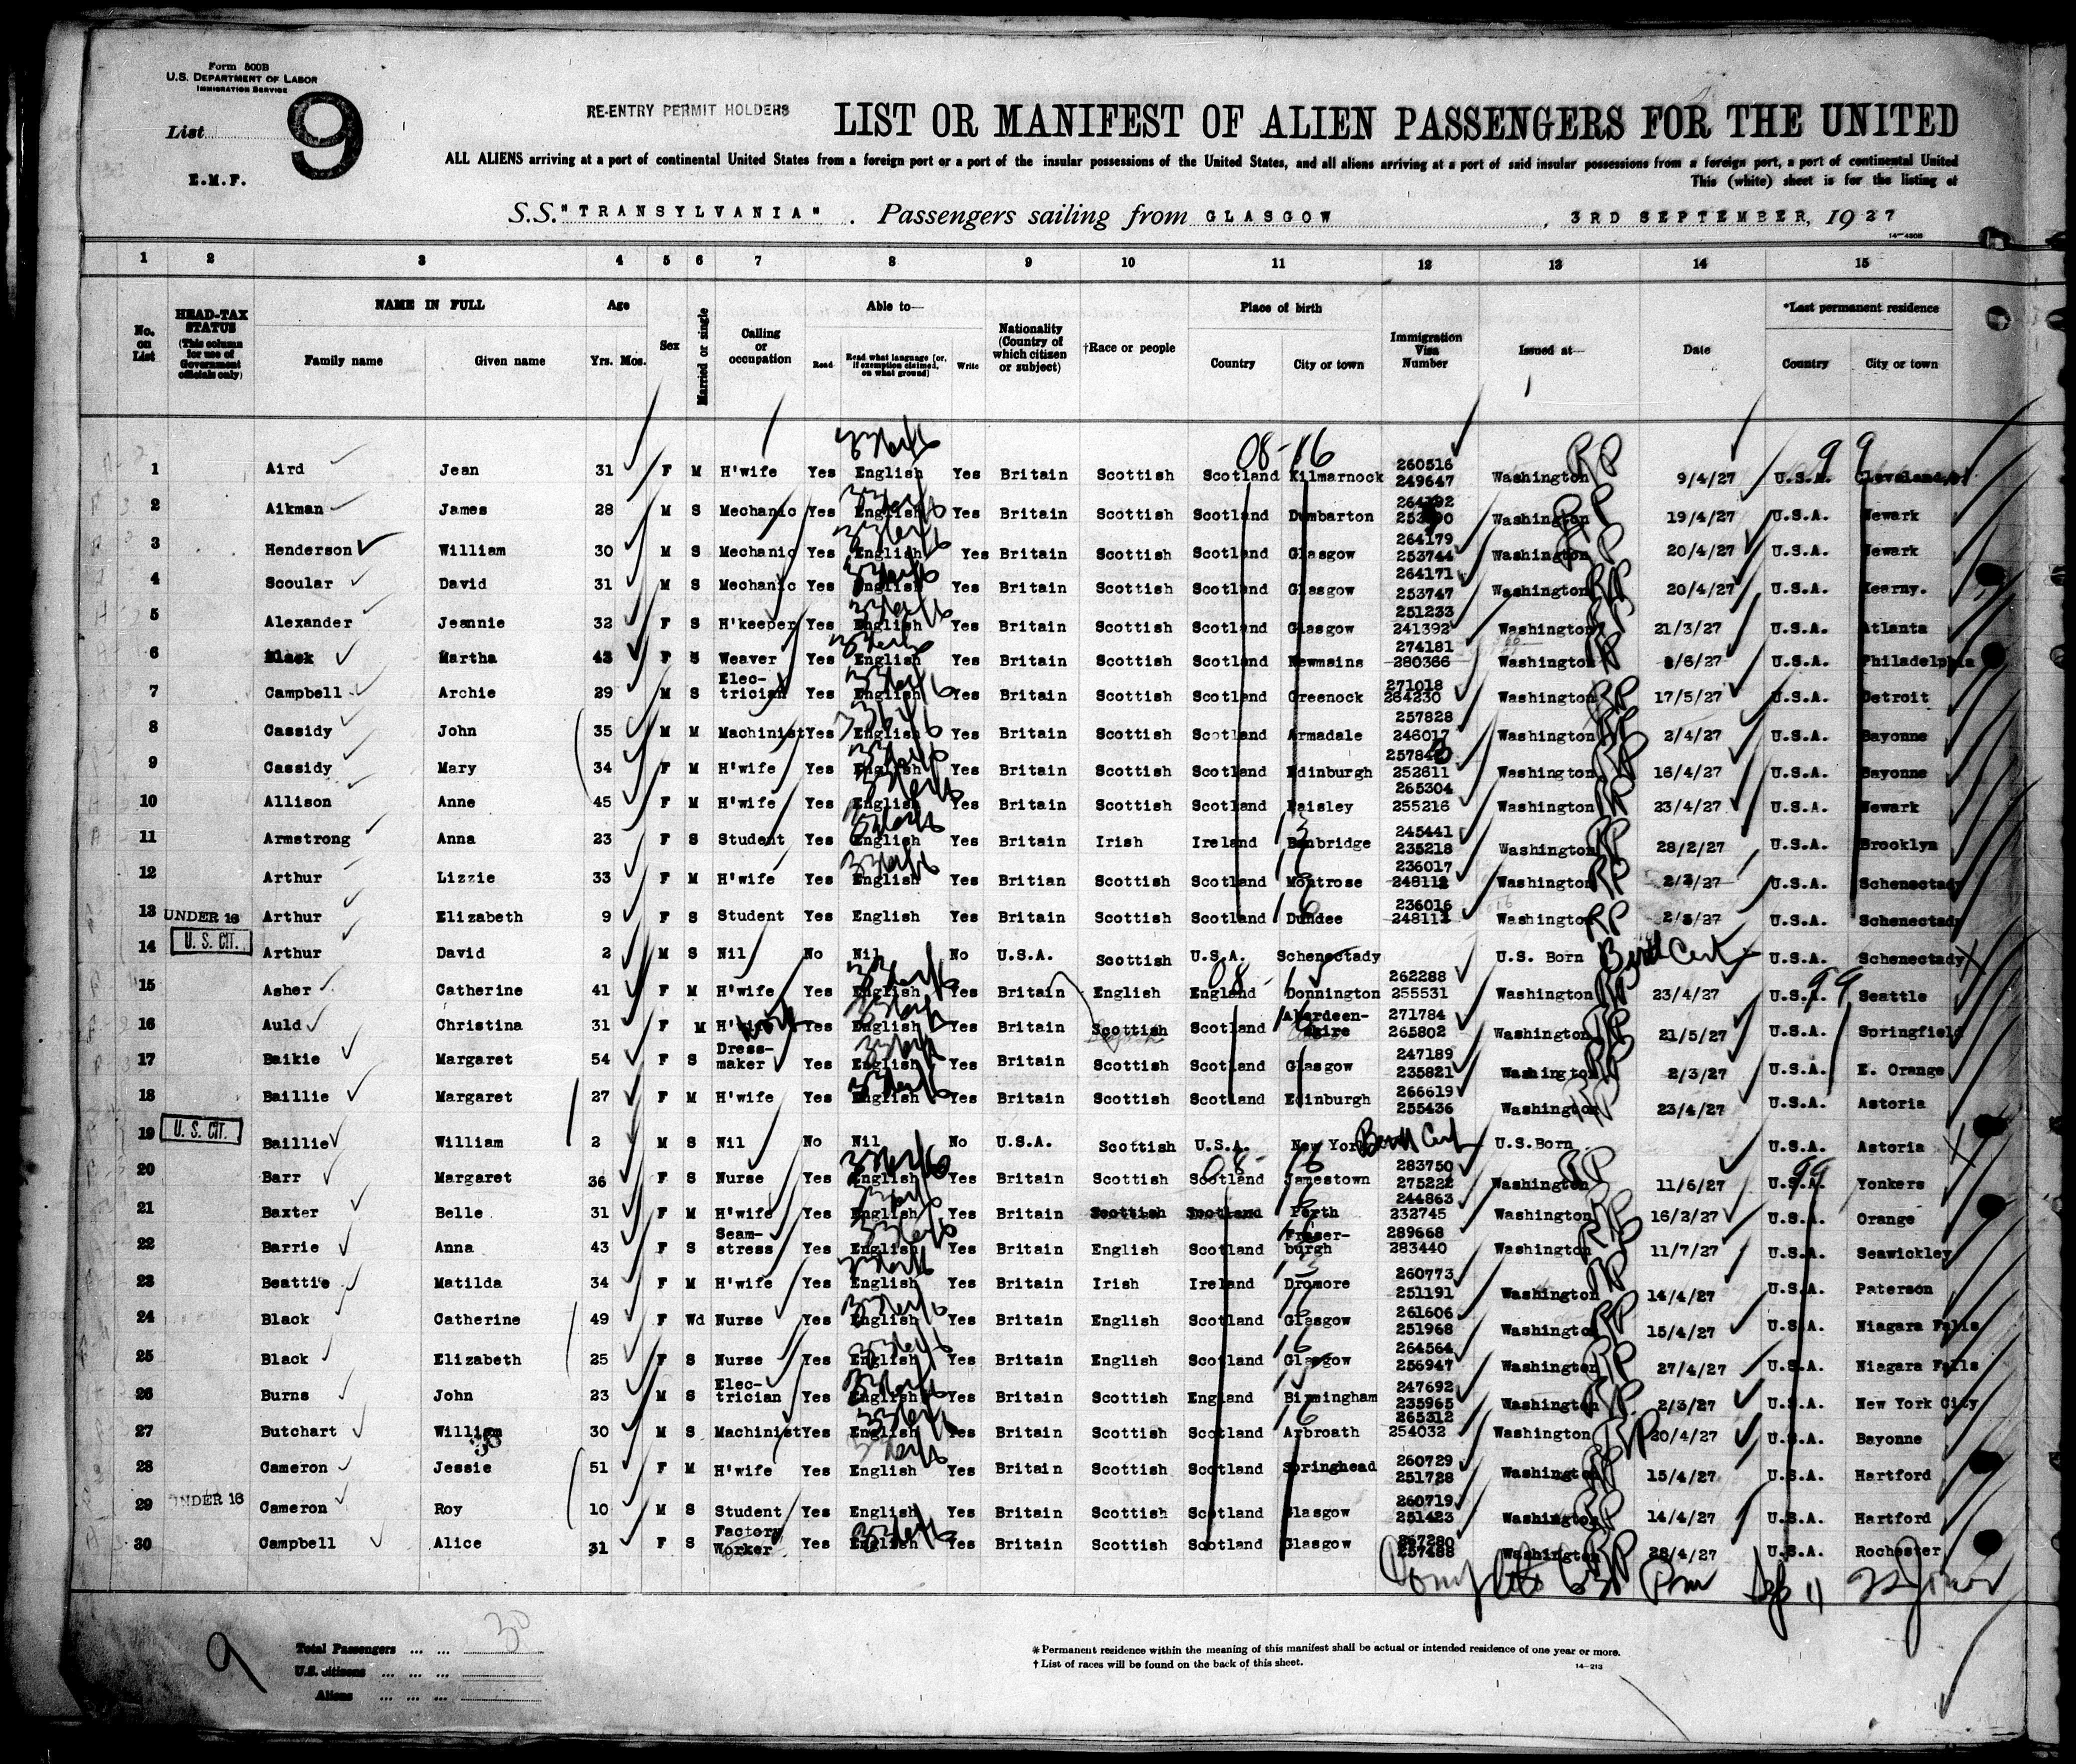 Form 500B
U.S. DEPARTMENT OF LABOR
IMMIGRATION SERVICE
List 9
E.M.F.
RE-ENTRY PERMIT HOLDERS
LIST OR MANIFEST OF ALIEN PASSENGERS FOR THE UNITED
ALL ALIENS arriving at a port of continental United States from a foreign port or a port of the insular possessions of the United States, and all aliens arriving at a port of said insular possessions from a foreign port, a port of continental United
This (white) sheet is for the listing of
S.S. "TRANSYLVANIA". Passengers sailing from GLASGOW, 3RD SEPTEMBER, 1927
14-430B
1 2 3 4 5 6 7 8 9 10 11 12 13 14 15
No. on List
HEAD-TAX STATUS (This column for use of Government officials only)
NAME IN FULL
Family name Given name
Age
Yrs. Mos.
Sex
Married or single
Calling or occupation
Able to—
Read Read what language [or, if exemption claimed, on what ground] Write
Nationality (Country of which citizen or subject)
†Race or people
Place of birth
Country City or town
Immigration Visa Number
Issued at—
Date
*Last permanent residence
Country City or town
08-16 99
1 Aird Jean 31 F M H'wife Yes English Yes Britain Scottish Scotland Kilmarnock 260516 249647 Washington RP 9/4/27 U.S.A. Cleveland
2 Aikman James 28 M S Mechanic Yes English Yes Britain Scottish Scotland Dumbarton Washington RP 19/4/27 U.S.A. Newark
3 Henderson William 30 M S Mechanic Yes English Yes Britain Scottish Scotland Glasgow 264179 253744 Washington RP 20/4/27 U.S.A. Newark
4 Scoular David 31 M S Mechanic Yes English Yes Britain Scottish Scotland Glasgow 264171 253747 Washington RP 20/4/27 U.S.A. Kearny.
5 Alexander Jeannie 32 F S H'keeper Yes English Yes Britain Scottish Scotland Glasgow 251233 241392 Washington RP 21/3/27 U.S.A. Atlanta
6 Black Martha 43 F S Weaver Yes English Yes Britain Scottish Scotland Newmains 274181 280366 Washington RP 8/6/27 U.S.A. Philadelphia
7 Campbell Archie 29 M S Elec-trician Yes English Yes Britain Scottish Scotland Greenock 271018 264230 Washington RP 17/5/27 U.S.A. Detroit
8 Cassidy John 35 M M Machinist Yes English Yes Britain Scottish Scotland Armadale 257828 246017 Washington RP 2/4/27 U.S.A. Bayonne
9 Cassidy Mary 34 F M H'wife Yes English Yes Britain Scottish Scotland Edinburgh 252611 Washington RP 16/4/27 U.S.A. Bayonne
10 Allison Anne 45 F M H'wife Yes English Yes Britain Scottish Scotland Paisley 265304 255216 Washington RP 23/4/27 U.S.A. Newark
11 Armstrong Anna 23 F S Student Yes English Yes Britain Irish Ireland Banbridge 245441 235218 Washington RP 28/2/27 U.S.A. Brooklyn
12 Arthur Lizzie 33 F M H'wife Yes English Yes Britian Scottish Scotland Montrose 236017 Washington RP 2/3/27 U.S.A. Schenectady
13 UNDER 16 Arthur Elizabeth 9 F S Student Yes English Yes Britain Scottish Scotland Dundee 236016 Washington RP 2/3/27 U.S.A. Schenectady
14 U. S. CIT. Arthur David 2 M S Nil No Nil No U.S.A. Scottish U.S.A. Schenectady U.S. Born Birth Cert U.S.A. Schenectady
15 Asher Catherine 41 F M H'wife Yes English Yes Britain English England Donnington 262288 255531 Washington RP 23/4/27 U.S.A. Seattle
16 Auld Christina 31 F M H'wife Yes English Yes Britain Scottish Scotland Aberdeen-shire 271784 265802 Washington RP 21/5/27 U.S.A. Springfield
17 Baikie Margaret 54 F S Dress-maker Yes English Yes Britain Scottish Scotland Glasgow 247189 235821 Washington RP 2/3/27 U.S.A. E. Orange
18 Baillie Margaret 27 F M H'wife Yes English Yes Britain Scottish Scotland Edinburgh 266619 255436 Washington RP 23/4/27 U.S.A. Astoria
19 U. S. CIT. Baillie William 2 M S Nil No Nil No U.S.A. Scottish U.S.A. New York Birth Cert U.S.Born U.S.A. Astoria
20 Barr Margaret 36 F S Nurse Yes English Yes Britain Scottish Scotland Jamestown 283750 275222 Washington RP 11/6/27 U.S.A. Yonkers
21 Baxter Belle 31 F M H'wife Yes English Yes Britain Scottish Scotland Perth 244863 232745 Washington RP 16/2/27 U.S.A. Orange
22 Barrie Anna 43 F S Seam-stress Yes English Yes Britain English Scotland Fraser-burgh 289668 283440 Washington RP 11/7/27 U.S.A. Seawickley
23 Beattie Matilda 34 F M H'wife Yes English Yes Britain Irish Ireland Dromore 260773 251191 Washington RP 14/4/27 U.S.A. Paterson
24 Black Catherine 49 F Wd Nurse Yes English Yes Britain English Scotland Glasgow 261606 251968 Washington RP 15/4/27 U.S.A. Niagara Falls
25 Black Elizabeth 25 F S Nurse Yes English Yes Britain English Scotland Glasgow 264564 256947 Washington RP 27/4/27 U.S.A. Niagara Falls
26 Burns John 23 M S Elec-trician Yes English Yes Britain Scottish England Birmingham 247692 235965 Washington RP 2/3/27 U.S.A. New York City
27 Butchart William 30 M S Machinist Yes English Yes Britain Scottish Scotland Arbroath 265312 254032 Washington RP 20/4/27 U.S.A. Bayonne
28 Cameron Jessie 51 F M H'wife Yes English Yes Britain Scottish Scotland Springhead 260729 251728 Washington RP 15/4/27 U.S.A. Hartford
29 UNDER 16 Cameron Roy 10 M S Student Yes English Yes Britain Scottish Scotland Glasgow 260719 251423 Washington RP 14/4/27 U.S.A. Hartford
30 Campbell Alice 31 F S Factory Worker Yes English Yes Britain Scottish Scotland Glasgow 257488 Washington RP 28/4/27 U.S.A. Rochester
Sep 11
9
Total Passengers ... ... 30
U.S. citizens ... ... ...
Aliens ... ... ...
* Permanent residence within the meaning of this manifest shall be actual or intended residence of one year or more.
† List of races will be found on the back of this sheet.
14-213